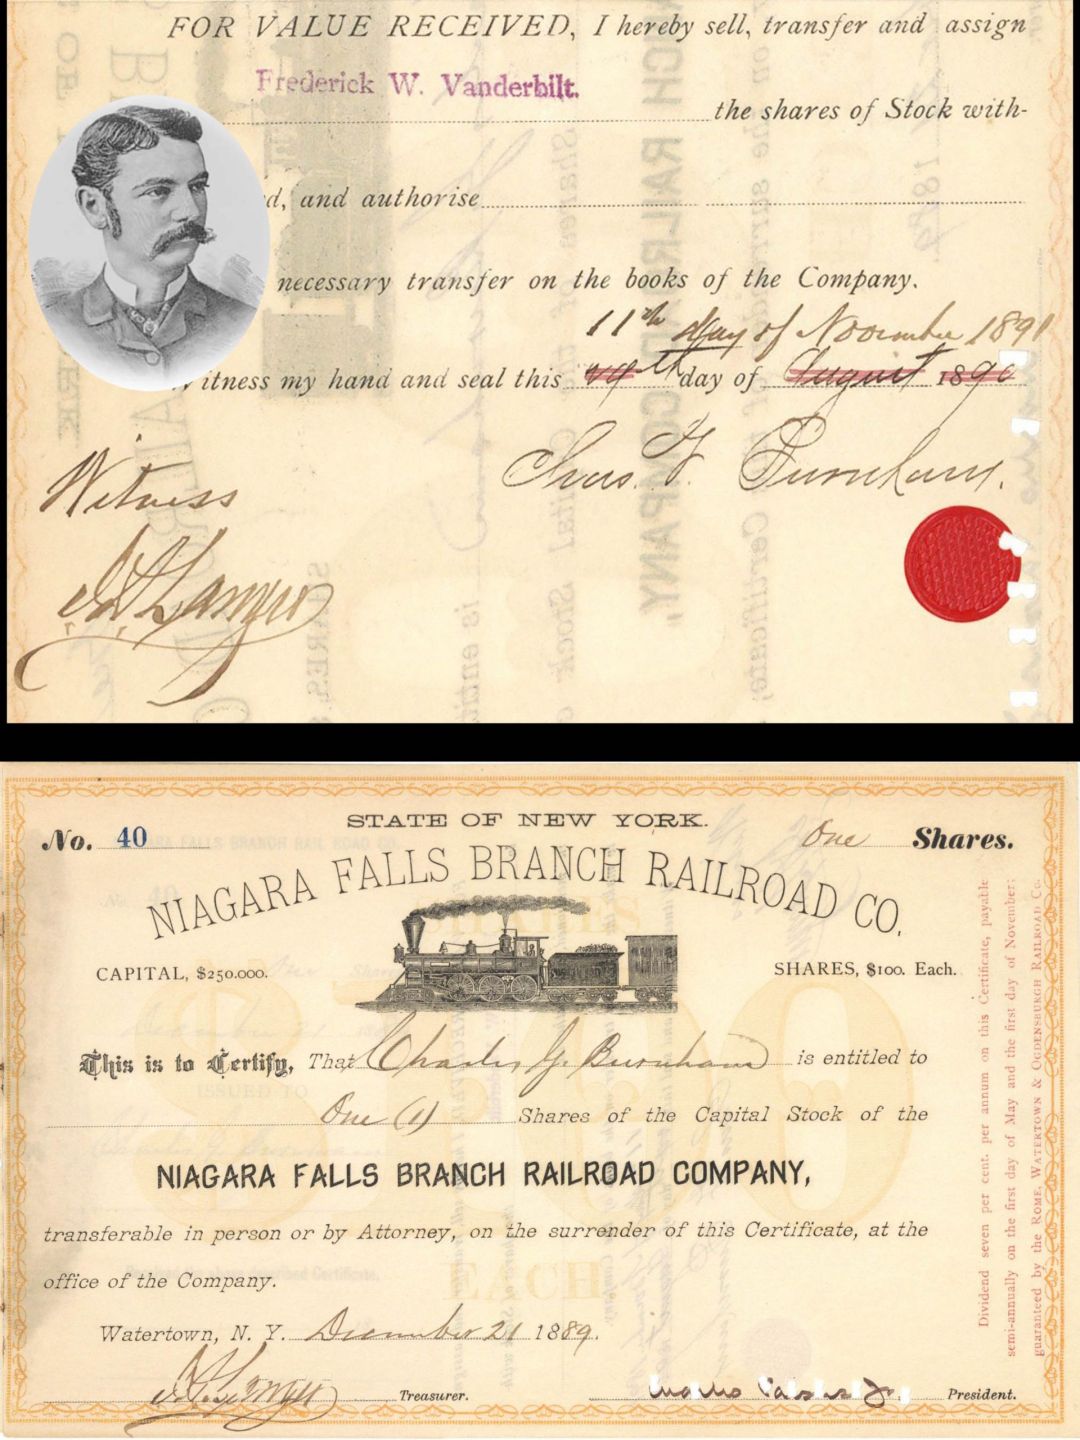 FOR VALUE RECEIVED, I hereby sell, transfer and assign
Frederick W. Vanderbilt.
the shares of Stock with-
d, and authorise
necessary transfer on the books of the Company.
11th day of November 1891
Witness my hand and seal this 29th day of August 1890
Witness
Chas. Y. Burnham.
No. 40
STATE OF NEW YORK.
One Shares.
NIAGARA FALLS BRANCH RAILROAD CO.
CAPITAL, $250.000.
SHARES, $100. Each.
This is to Certify, That Charles Y. Burnham is entitled to
One (1) Shares of the Capital Stock of the
NIAGARA FALLS BRANCH RAILROAD COMPANY,
transferable in person or by Attorney, on the surrender of this Certificate, at the
office of the Company.
Watertown, N. Y. December 21 1889.
Treasurer.
President.
Dividend seven per cent. per annum on this Certificate, payable
semi-annually on the first day of May and the first day of November;
guaranteed by the ROME, WATERTOWN & OGDENSBURGH RAILROAD CO.